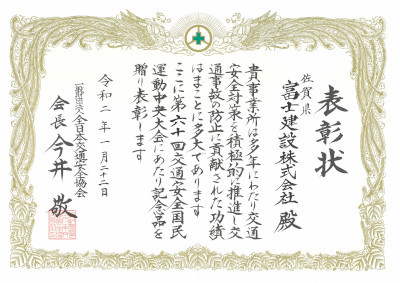 表彰状
佐賀県
富士建設株式会社 殿
貴事業所は多年にわたり交通
安全対策を積極的に推進し交
通事故の防止に貢献された功績
はまことに多大であります
ここに第六十回交通安全国民
運動中央大会にあたり記念品を
贈り表彰します
令和二年一月二十二日
一般財団法人全日本交通安全協会
会長 今井 敬